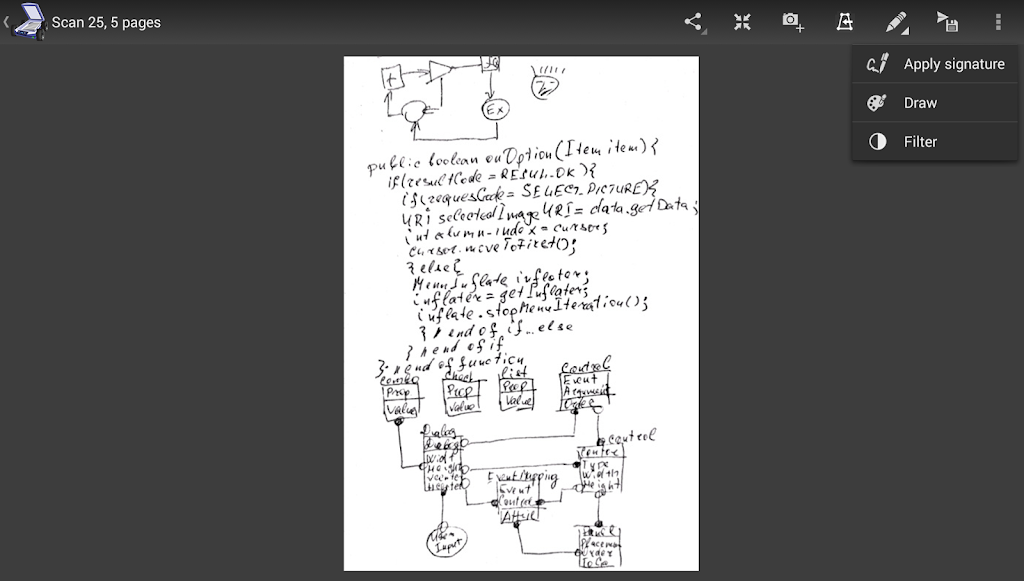 Scan 25, 5 pages
Apply signature
Draw
Filter
+
Ex
public boolean onOption(Item item){
if(resultCode = RESUL_OK){
if(requesCode = SELECT_PICTURE){
URI selectedImageURI = data.getData;
int column-index = cursor;
cursor.moveToFirst();
}else{
MenuInflate inflater;
inflater = getInflater;
inflate.stopMenuIteration();
} end of if...else
} end of if
}; end of function
Combo
Prop
Value
Check
Prop
Value
List
Prop
Value
Control
Event
Argument
Order
Dialog
Dialog
Width
Height
Control
Type
Width
Height
EventMapping
Event
Control
User
Input
Placemen
Order